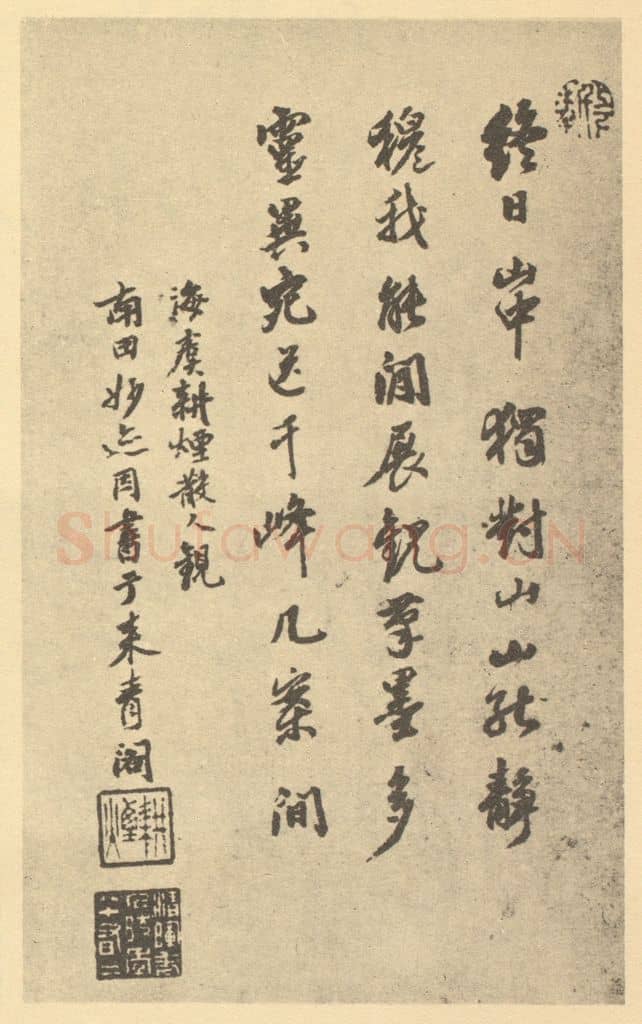 終日山中獨對山山能靜
穆我能閒展觀筆墨多
靈異宛送千峰几案間
海虞耕煙散人觀
南田妙迹因書于來青閣
耕煙
Shufawang.CN